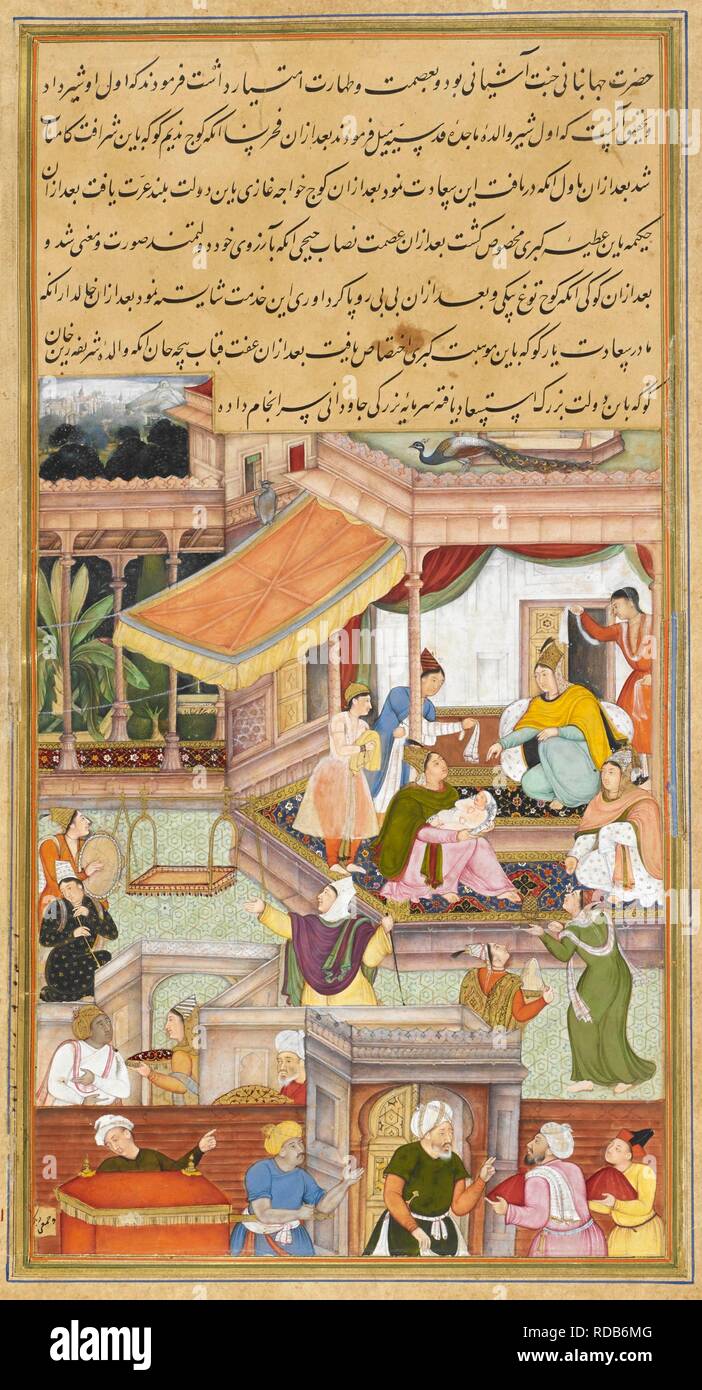 حضرت جهانبانی جنت آشیانی بود و بعصمت و طهارت امتیاز داشت فرمودند که اول او شیر داد
و تحقیق آنست که اول شیر والدهٔ ماجدهٔ قدسیه میل فرمودند بعد ازان فخر نسا انکه کوچ ندیم کوکه باین شرافت کامیاب
شد بعد ازان بهاول انکه دریافت این سعادت نمود بعد ازان کوچ خواجه غازی باین دولت بلند عزت یافت بعد ازان
حکیمه باین عطیهٔ کبری مخصوص گشت بعد ازان عصمت نصاب جیجی انکه بآرزوی خود دولتمند صورت و معنی شد و
بعد ازان کوکی انکه کوچ توغ بیکی و بعد ازان بی بی روپا گرد آوری این خدمت شایسته نمود بعد ازان خالدار انکه
مادر سعادت یار کوکه باین موهبت کبری اختصاص یافت بعد ازان عفت قباب پیچه جان انکه والدهٔ شریفه زین خان
کوکه باین دولت بزرگ استسعاد یافته سرمایهٔ بزرگی جاودانی سرانجام داده
alamy
alamy
Image ID: RDB6MG
www.alamy.com